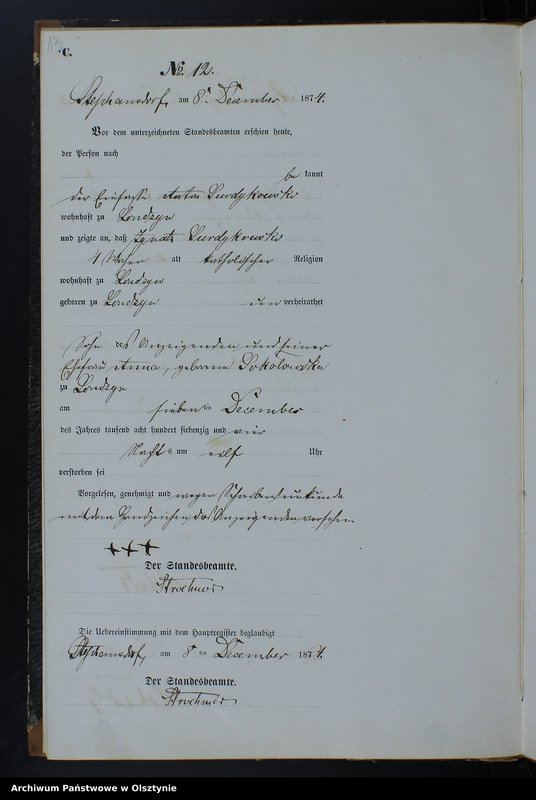 12
C.
No. 12.
Stephansdorf, am 8. December 1874.
Vor dem unterzeichneten Standesbeamten erschien heute,
der Person nach
be kannt
der Einsasse Anton Surdykowski
wohnhaft zu Londzyn
und zeigte an, daß Ignatz Surdykowski
alt katholischer Religion
wohnhaft zu Londzyn
geboren zu Londzyn un verheirathet
Sohn des Anzeigenden und seiner
Ehefrau Anna, geborene Sokolowska
zu Londzyn
am sieben ten December
des Jahres tausend acht hundert siebenzig und vier
Nachts um eilf Uhr
verstorben sei
Vorgelesen, genehmigt und wegen Schreibensunkunde
mit dem Handzeichen des Anzeigenden versehen
+++
Der Standesbeamte.
Die Uebereinstimmung mit dem Hauptregister beglaubigt
Stephansdorf, am 8 ten December 1874.
Der Standesbeamte.
Archiwum Państwowe w Olsztynie